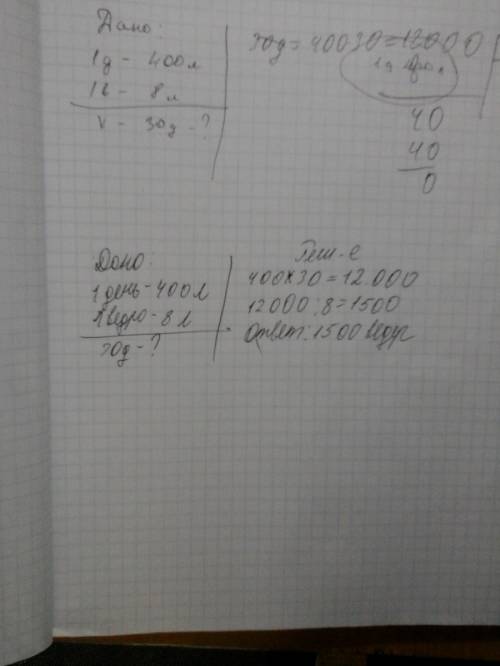 Дано:
1д - 400л
1в - 8л
V - 30д - ?
30д = 40030 = 12000
1д
40
40
0
Дано:
1 день - 400л
1 ведро - 8 л
30д - ?
Реш-е
400×30=12.000
12000:8=1500
Ответ: 1500 ведр